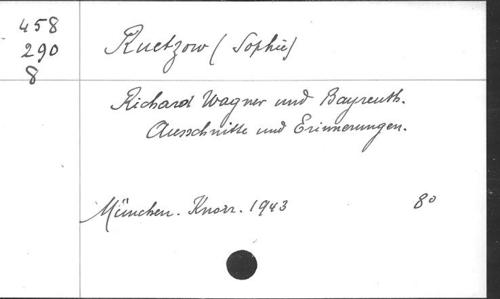 458
290
8
Ruetzow (Sophie)
Richard Wagner und Bayreuth.
Ausschnitte und Erinnerungen.
München. Knorr. 1943 8°